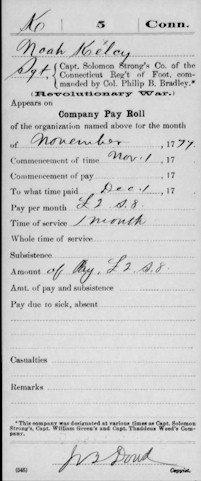 K 5 Conn.
Noah Kelcy
Sgt., Capt. Solomon Strong's Co. of the
Connecticut Reg't of Foot, com-
manded by Col. Philip B. Bradley.*
(Revolutionary War.)
Appears on
Company Pay Roll
of the organization named above for the month
of November, 1777.
Commencement of time Nov. 1, 17
Commencement of pay , 17
To what time paid Dec. 1, 17
Pay per month £2 s.8
Time of service 1 month
Whole time of service
Subsistence
Amount of Pay. £2. s.8.
Amt. of pay and subsistence
Pay due to sick, absent
Casualties
Remarks
*This company was designated at various times as Capt. Solomon
Strong's, Capt. William Green's and Capt. Thaddeus Weed's Com-
pany.
(545) Copyist.